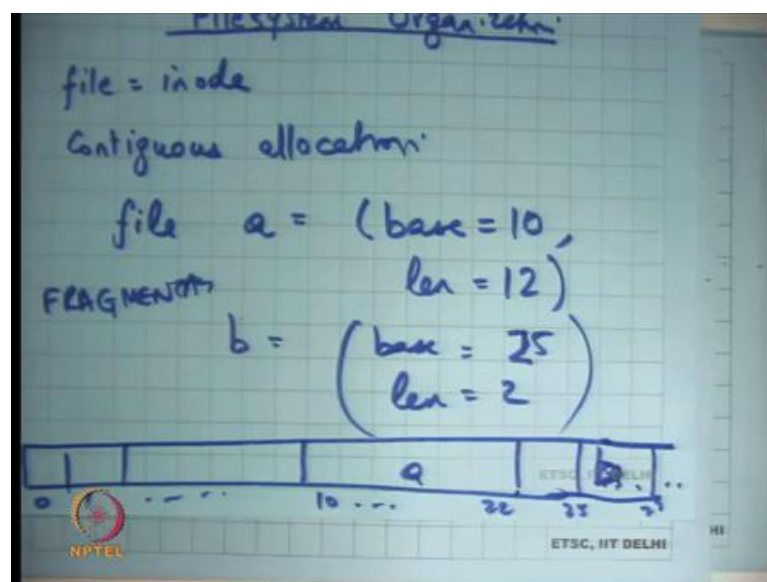 Filesystem Organization
file = inode
Contiguous allocation
file a = (base = 10,
len = 12)
FRAGMENT
b = (base = 25
len = 2)
a b . . ..
0 1 ..... 10 ... 22 25
ETSC, IIT DELHI
NPTEL
ETSC, IIT DELHI
HI